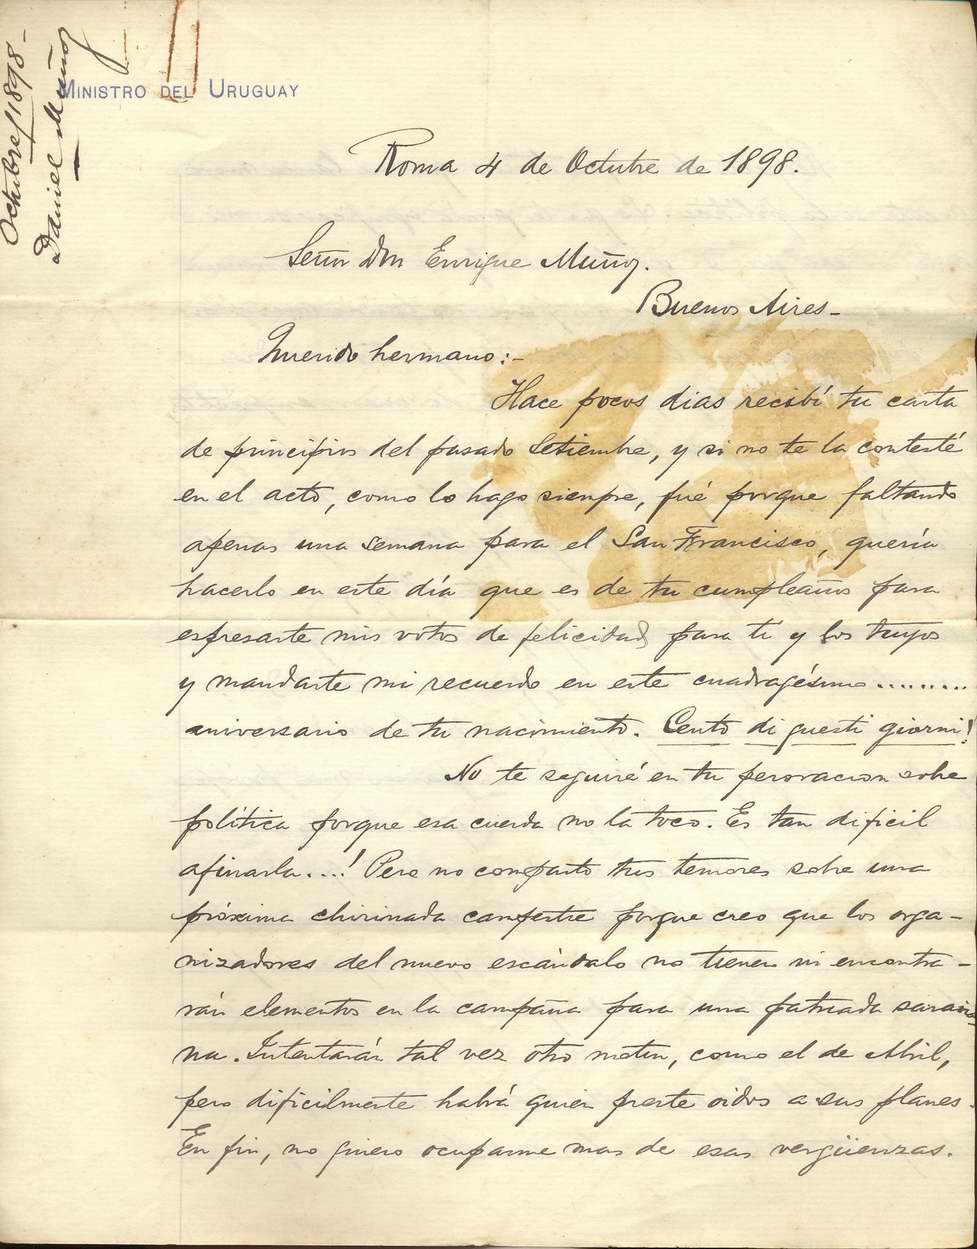 Octubre/1898-
Daniel Muñoz
MINISTRO DEL URUGUAY
Roma 4 de Octubre de 1898.
Señor Don Enrique Muñoz.
Buenos Aires-
Querido hermano:-
Hace pocos dias recibí tu carta
de principios del pasado Setiembre, y si no te la contesté
en el acto, como lo hago siempre, fué porque faltando
apenas una semana para el San Francisco, quería
hacerlo en este día que es de tu cumpleaños para
espresarte mis votos de felicidad para ti y los tuyos
y mandarte mi recuerdo en este cuadragésimo .........
aniversario de tu nacimiento. Cento di questi giorni!
No te seguiré en tu peroracion sobre
política porque esa cuerda no la toco. Es tan dificil
afinarla....! Pero no comparto tus temores sobre una
próxima chirinada campestre porque creo que los orga-
nizadores del nuevo escándalo no tienen ni encontra-
rán elementos en la campaña para una patriada saravia-
na. Intentarán tal vez otro motin, como el de Abril,
pero dificilmente habrá quien preste oidos a sus planes.
En fin, no quiero ocuparme mas de esas vergüenzas.